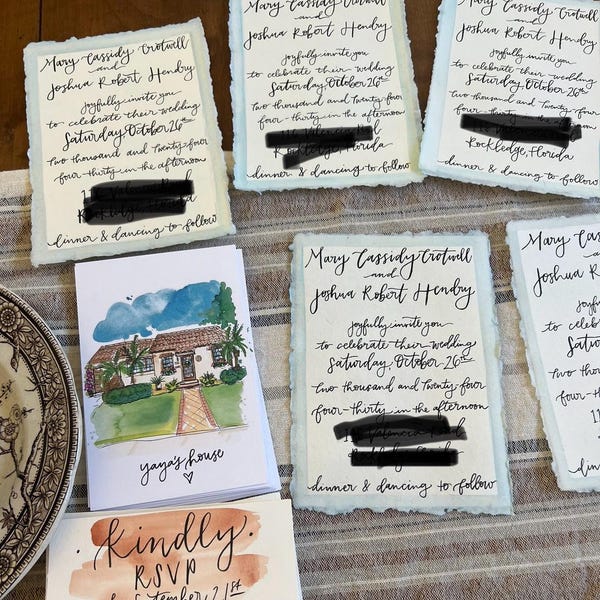 Mary Cassidy Crotwell
and
Joshua Robert Hendry
joyfully invite you
to celebrate their wedding
Saturday, October 26th
two thousand and twenty-four
four-thirty in the afternoon
dinner & dancing to follow
Mary Cassidy Crotwell
and
Joshua Robert Hendry
joyfully invite you
to celebrate their wedding
Saturday, October 26th
two thousand and twenty-four
four-thirty in the afternoon
Rockledge, Florida
dinner & dancing to follow
and
Joshua Robert Hendry
joyfully invite you
to celebrate their wedding
Saturday, October 26th
two thousand and twenty-four
four-thirty in the afternoon
Rockledge, Florida
dinner & dancing to follow
yaya's house
Kindly
RSVP
September 21st
Mary Cassidy Crotwell
and
Joshua Robert Hendry
joyfully invite you
to celebrate their wedding
Saturday, October 26th
two thousand and twenty-four
four-thirty in the afternoon
dinner & dancing to follow
Mary Cass
Joshua R
to celeb
Satur
two tho
four-th
dinner